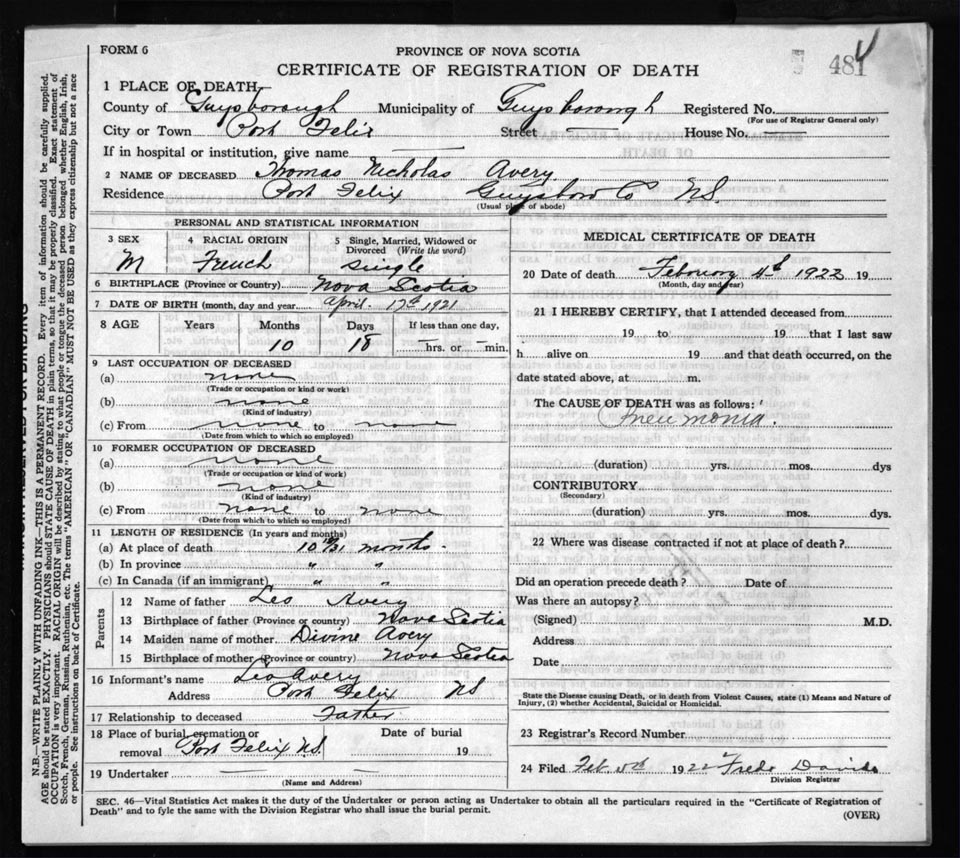 FORM 6
PROVINCE OF NOVA SCOTIA
481
CERTIFICATE OF REGISTRATION OF DEATH
1 PLACE OF DEATH—
County of Guysborough Municipality of Guysborough Registered No.
(For use of Registrar General only)
City or Town Port Felix Street — House No. —
If in hospital or institution, give name —
2 NAME OF DECEASED Thomas Nicholas Avery
Residence Port Felix Guysboro Co NS.
(Usual place of abode)
PERSONAL AND STATISTICAL INFORMATION
3 SEX
M
4 RACIAL ORIGIN
French
5 Single, Married, Widowed or
Divorced (Write the word)
single
6 BIRTHPLACE (Province or Country) Nova Scotia
7 DATE OF BIRTH (month, day and year) April 17th 1921
8 AGE Years Months Days If less than one day,
10 18 —hrs. or —min.
9 LAST OCCUPATION OF DECEASED
(a) none
(Trade or occupation or kind or work)
(b) none
(Kind of industry)
(c) From none to none
(Date from which to which so employed)
10 FORMER OCCUPATION OF DECEASED
(a) none
(Trade or occupation or kind of work)
(b) none
(Kind of industry)
(c) From none to none
(Date from which to which so employed)
11 LENGTH OF RESIDENCE (In years and months)
(a) At place of death 10 months.
(b) In province " "
(c) In Canada (if an immigrant) " "
Parents
12 Name of father Leo Avery
13 Birthplace of father (Province or country) Nova Scotia
14 Maiden name of mother Divine Avery
15 Birthplace of mother (Province or country) Nova Scotia
16 Informant's name Leo Avery
Address Port Felix NS
17 Relationship to deceased Father
18 Place of burial, cremation or Date of burial
removal Port Felix NS. 19
19 Undertaker —
(Name and Address)
MEDICAL CERTIFICATE OF DEATH
20 Date of death February 4th 1922 19
(Month, day and year)
21 I HEREBY CERTIFY, that I attended deceased from
19 to 19 that I last saw
h alive on 19 and that death occurred, on the
date stated above, at m.
The CAUSE OF DEATH was as follows:
Pneumonia.
(duration) yrs. mos. dys
CONTRIBUTORY
(Secondary)
(duration) yrs. mos. dys.
22 Where was disease contracted if not at place of death?
Did an operation precede death? Date of
Was there an autopsy?
(Signed) M.D.
Address
Date
State the Disease causing Death, or in death from Violent Causes, state (1) Means and Nature of
Injury, (2) whether Accidental, Suicidal or Homicidal.
23 Registrar's Record Number
24 Filed Feb. 1922 Fred
Division Registrar
SEC. 46—Vital Statistics Act makes it the duty of the Undertaker or person acting as Undertaker to obtain all the particulars required in the "Certificate of Registration of
Death" and to fyle the same with the Division Registrar who shall issue the burial permit.
(OVER)
N.B.—WRITE PLAINLY WITH UNFADING INK—THIS IS A PERMANENT RECORD. Every item of information should be carefully supplied.
AGE should be stated EXACTLY. PHYSICIANS should STATE CAUSE OF DEATH in plain terms, so that it may be properly classified. Exact statement of
OCCUPATION is very important. RACIAL ORIGIN will be described by stating to what people or tongue the deceased person belonged whether English, Irish,
Scotch, French, German, Russian, Ruthenian, etc. The terms "AMERICAN" OR "CANADIAN" MUST NOT BE USED as they express citizenship but not a race
or people. See instructions on back of Certificate.